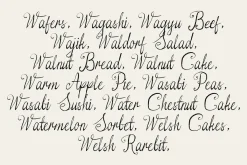 Wafers, Wagashi, Wagyu Beef,
Wajik, Waldorf Salad,
Walnut Bread, Walnut Cake,
Warm Apple Pie, Wasabi Peas,
Wasabi Sushi, Water Chestnut Cake,
Watermelon Sorbet, Welsh Cakes,
Welsh Rarebit,